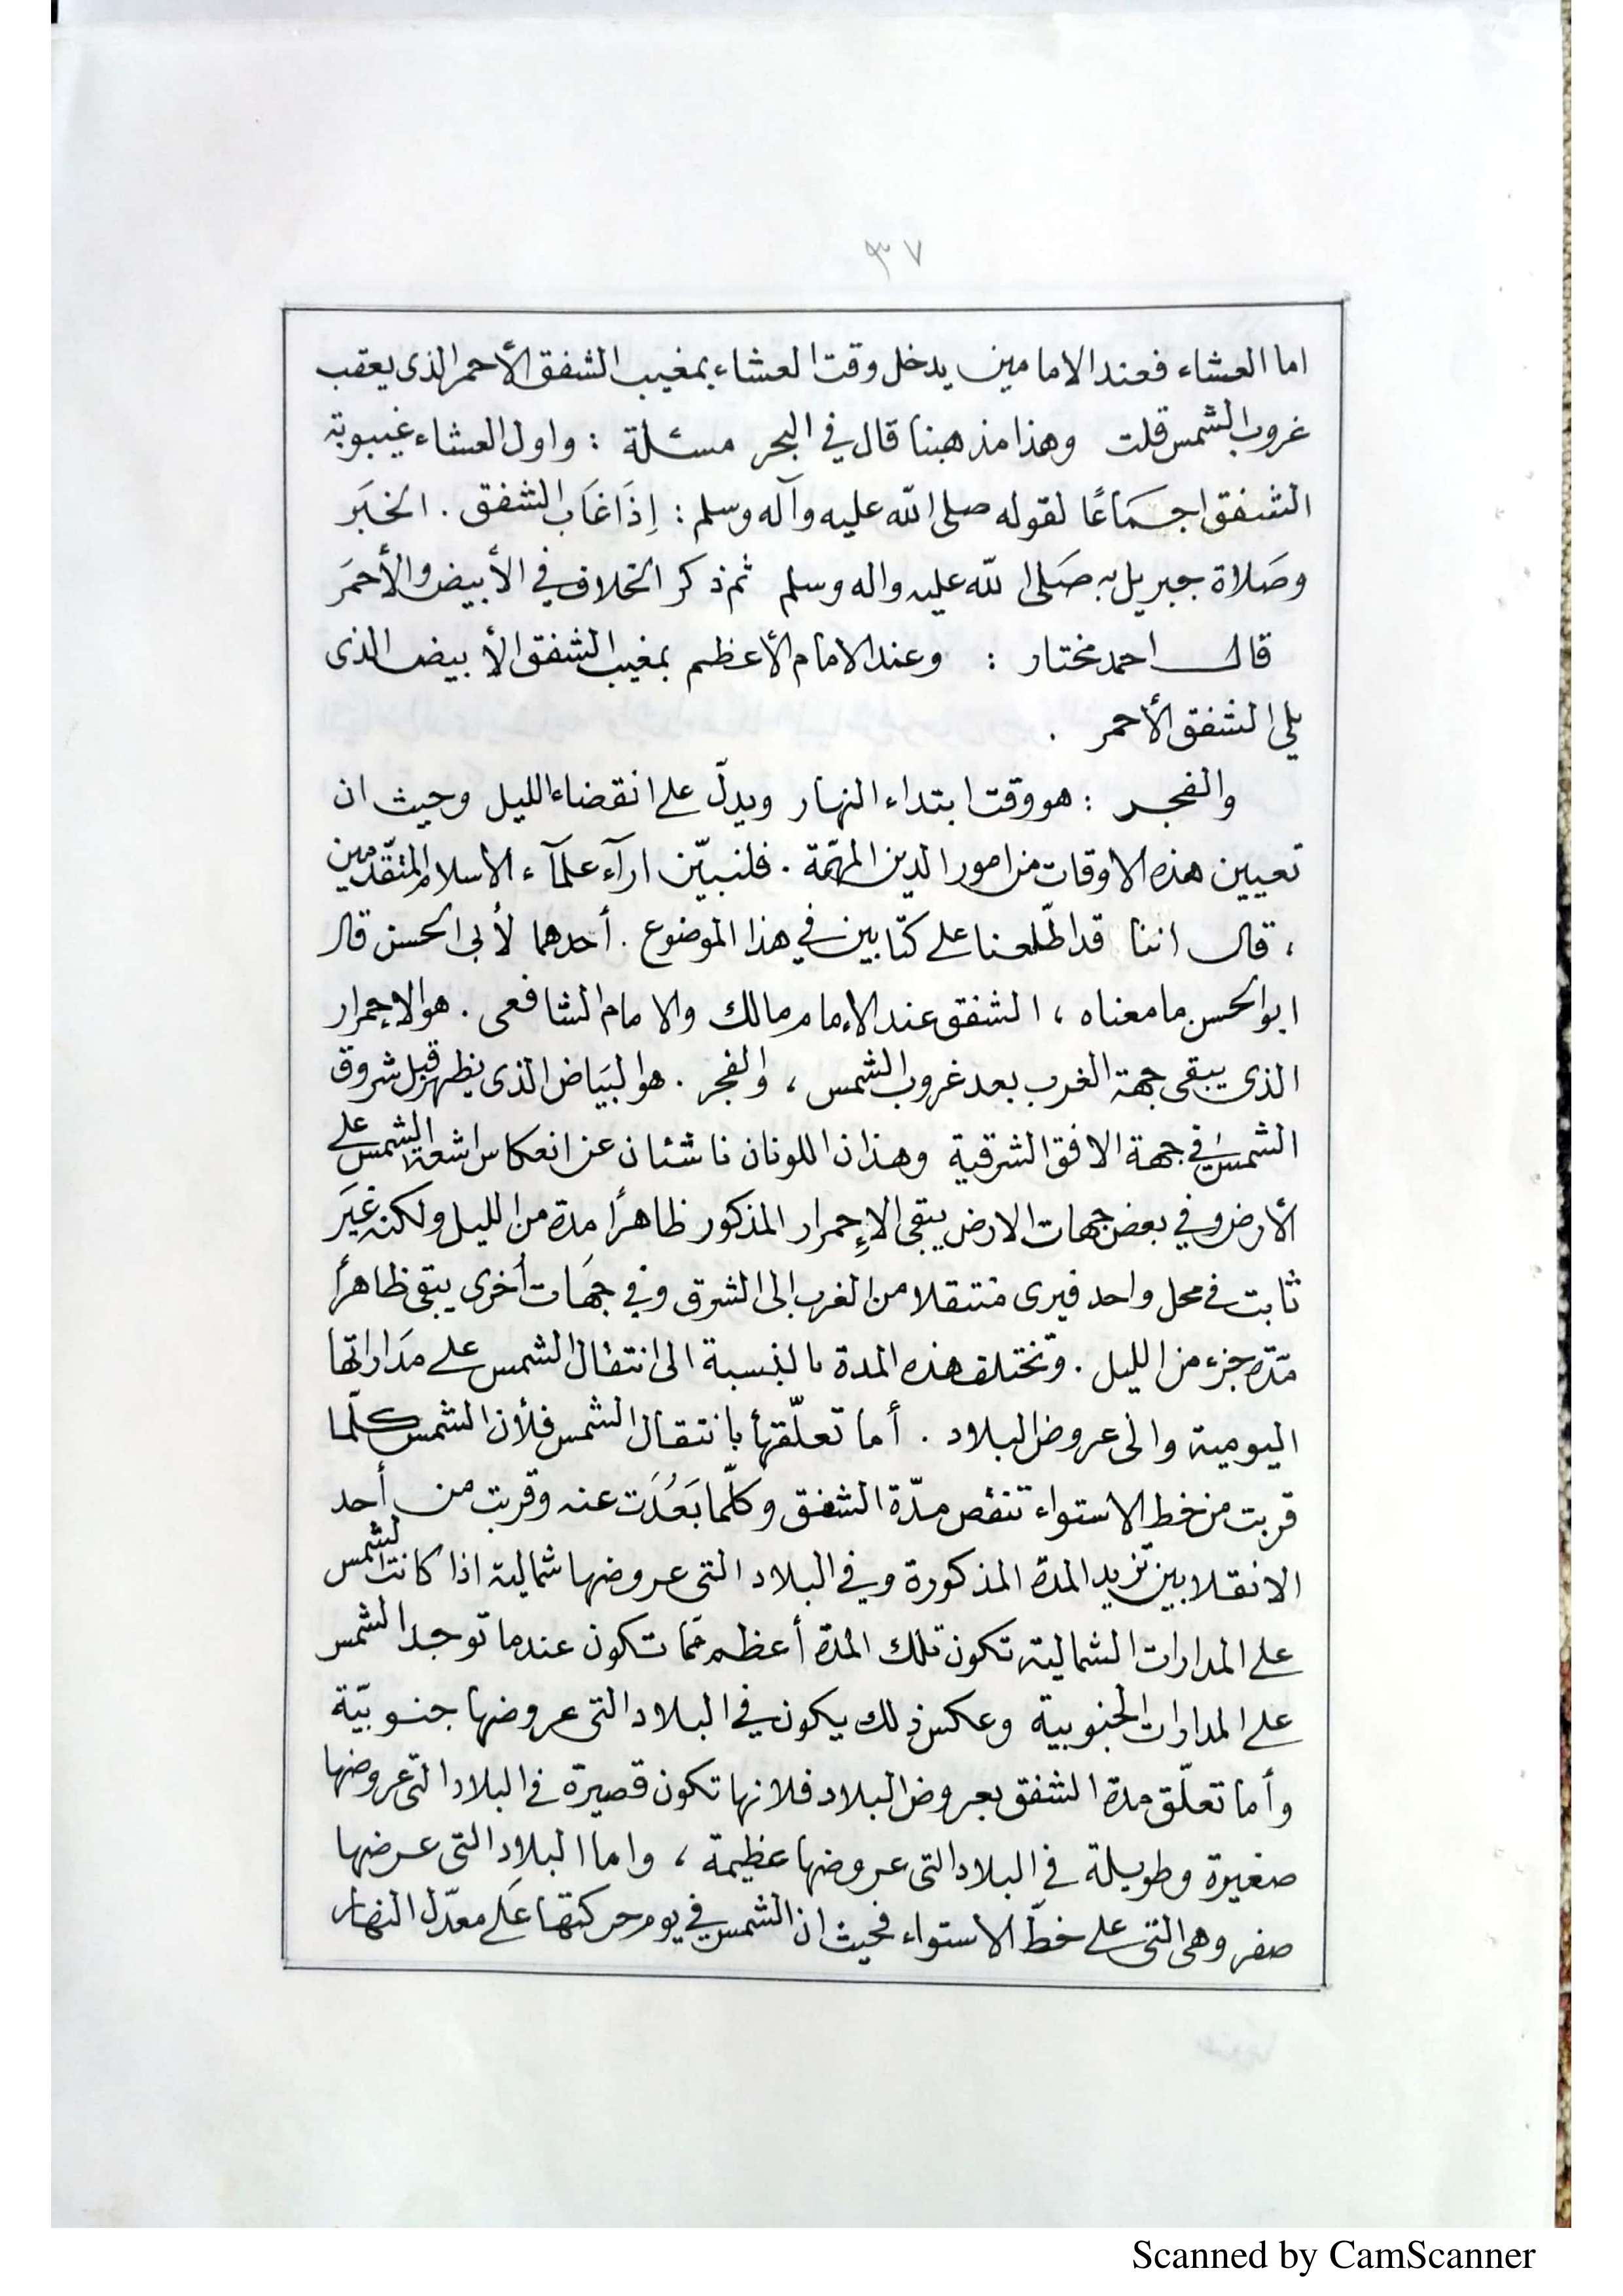 ٣٧
اما العشاء فعند الامامين يدخل وقت العشاء بمغيب الشفق الأحمر الذى يعقب
غروب الشمس قلت وهذا مذهبنا قال في البحر مسئلة : واول العشاء غيبوبة
الشفق اجماعًا لقوله صلى الله عليه وآله وسلم : إذَا غَاب الشفق . الخبَر
وصَلاة جبريل به صَلى الله عليه واله وسلم ثم ذكر الخلاف في الأبيض والأحمَر
قال احمد مختار : وعند الامام الأعظم بمغيب الشفق الأبيض الذى
يلي الشفق الأحمر .
والفجر : هو وقت ابتداء النهار ويدلّ على انقضاء الليل وحيث ان
تعيين هذه الاوقات من امور الدين المهمّة . فلنبيّن ارآء علمآء الاسلام المتقدّمين
، قال اننا قد اطّلعنا على كتابين في هذا الموضوع . أحدهما لأبى الحسن قال
ابو الحسن ما معناه ، الشفق عند الإمام مالك والامام الشافعى . هو الإحمرار
الذى يبقى جهة الغرب بعد غروب الشمس ، والفجر . هو البَياض الذى يظهر قبل شروق
الشمس في جهة الافق الشرقية وهذان اللونان ناشئان عن انعكاس اشعة الشمس على
الأرض وفي بعض جهات الارض يبقى الإحمرار المذكور ظاهرًا مدة من الليل ولكنه غيَر
ثابت في محل واحد فيرى منتقلا من الغرب إلى الشرق وفي جهَات أخرى يبقى ظاهرًا
مدّة جزء من الليل . وتختلف هذه المدة بالنسبة الى انتقال الشمس على مدَاراتها
اليومية والى عروض البلاد . أما تعلّقها بانتقال الشمس فلأن الشمس كلّما
قربت من خط الاستواء تنقص مدّة الشفق وكلّما بَعُدَت عنه وقربت من أحد
الانقلابين تزيد المدة المذكورة وفي البلاد التى عروضها شمالية اذا كانت الشمس
على المدارات الشمالية تكون تلك المدة أعظم ممّا تكون عندما توجد الشمس
على المدارات الجنوبية وعكس ذلك يكون في البلاد التى عروضها جنوبيّة
وأما تعلّق مدة الشفق بعروض البلاد فلانها تكون قصيرة في البلاد التى عروضها
صغيرة وطويلة في البلاد التى عروضها عظيمة ، واما البلاد التى عرضها
صفر وهى التى على خطّ الاستواء فحيث ان الشمس في يوم حركتها عَلى معدّل النهار
Scanned by CamScanner